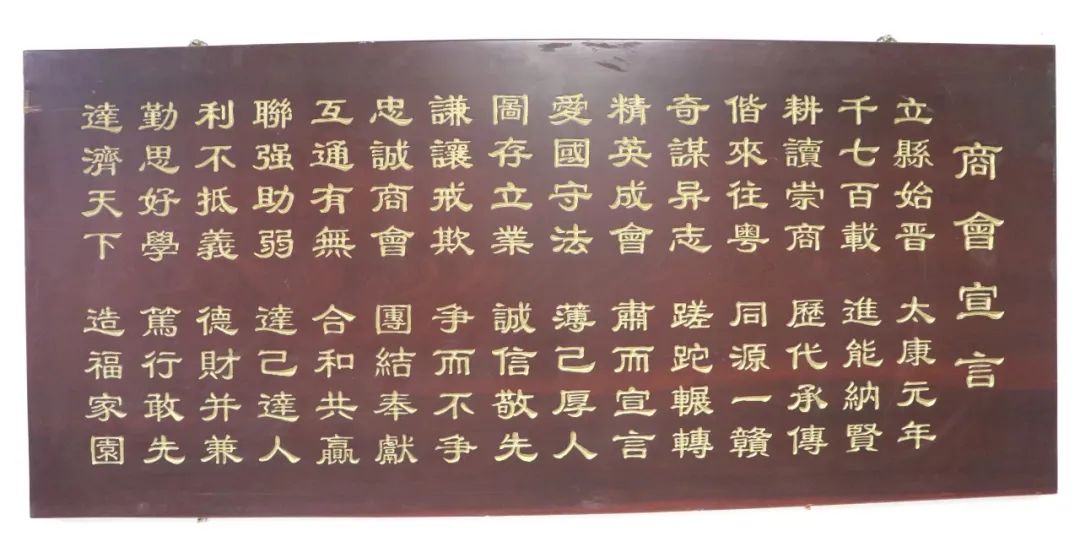 商會宣言
立縣始晋 太康元年
千七百載 進能納賢
耕讀崇商 歷代承傳
偕來往粤 同源一贛
奇謀异志 蹉跎輾轉
精英成會 肅而宣言
愛國守法 薄己厚人
圖存立業 誠信敬先
謙讓戒欺 争而不争
忠誠商會 團結奉獻
互通有無 合和共贏
聯强助弱 達己達人
利不抵義 德財并兼
勤思好學 篤行敢先
達濟天下 造福家園